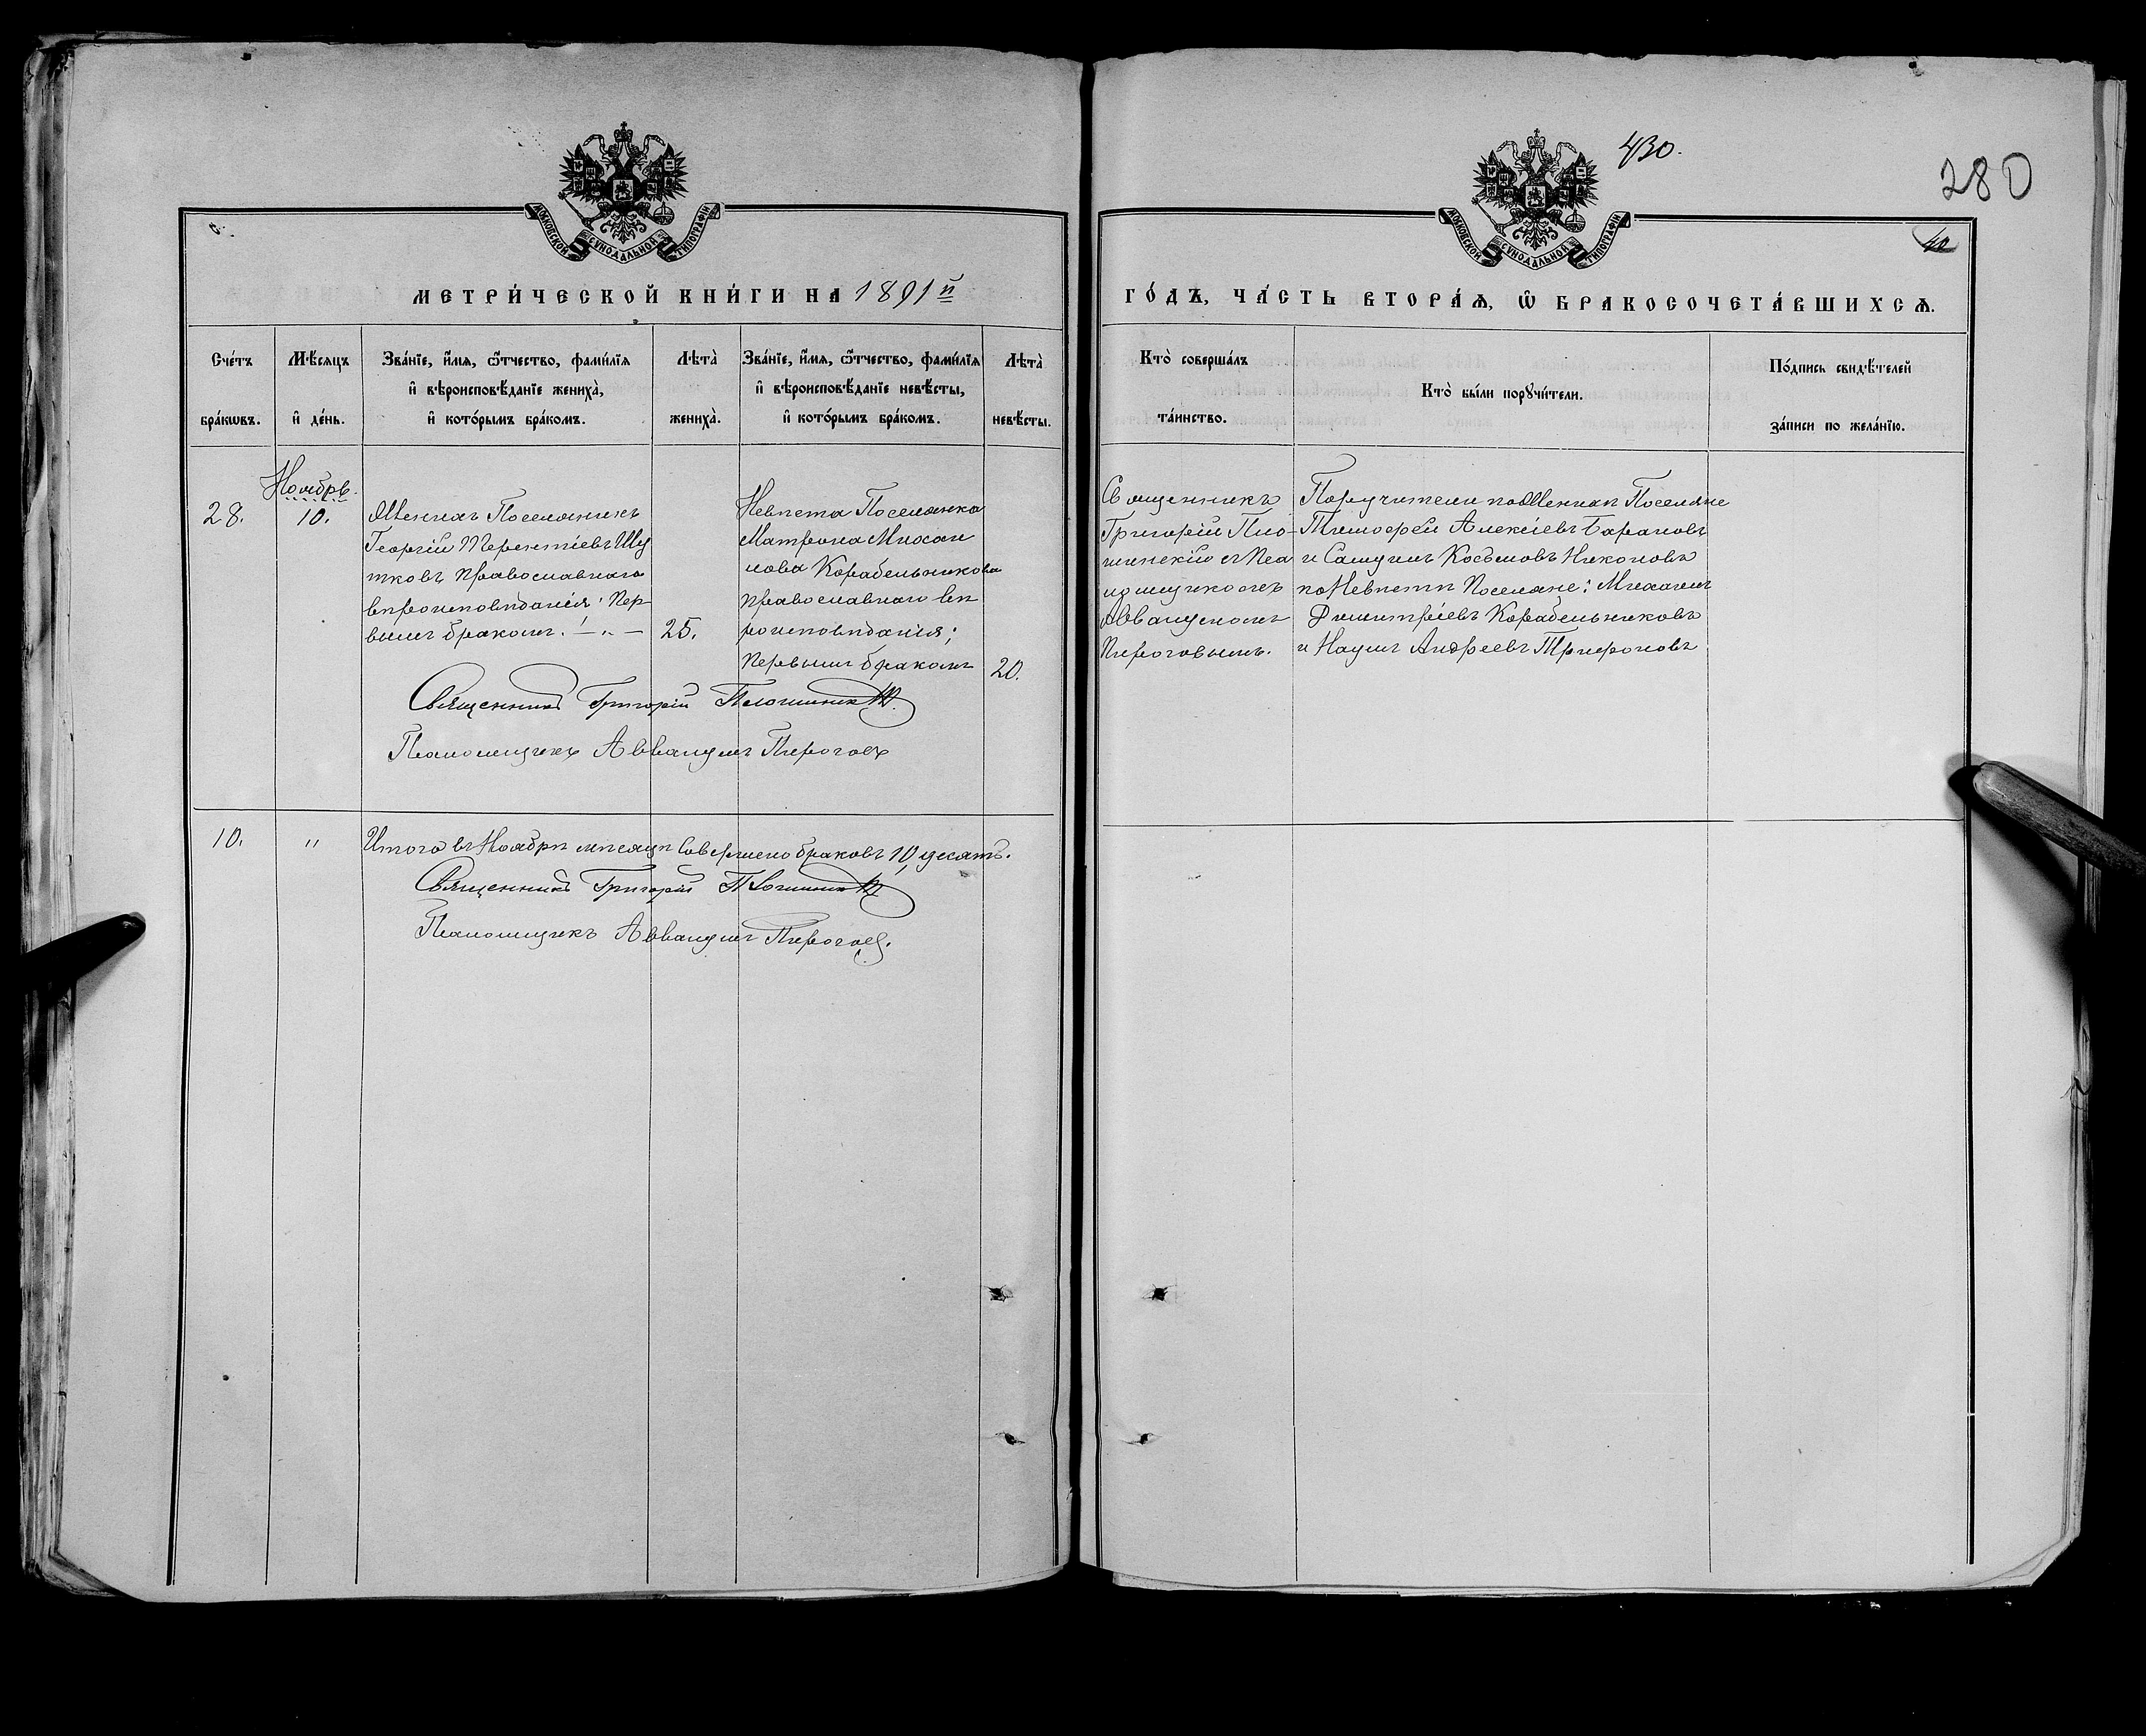 430.
280
40
МОСКОВСКОЙ СѴНОДАЛЬНОЙ ТИПОГРАФІИ
МОСКОВСКОЙ СѴНОДАЛЬНОЙ ТИПОГРАФІИ
МЕТРИ́ЧЕСКОЙ КНИ́ГИ НА 1891й
ГО́ДЪ, ЧА́СТЬ ВТОРА́Ѧ, Ѡ҆ БРАКОСОЧЕТА́ВШИХСѦ.
Сче́тъ бра́кѡвъ.
Мѣ́сяцъ и҆ де́нь.
Зва́нїе, и҆́мя, ѻ҆́тчество, фами́лїя
и҆ вѣроисповѣ́данїе жениха̀,
и҆ кото́рымъ бра́комъ.
Лѣта̀ жениха̀.
Зва́нїе, и҆́мя, ѻ҆́тчество, фами́лїя
и҆ вѣроисповѣ́данїе невѣ́сты,
и҆ кото́рымъ бра́комъ.
Лѣта̀ невѣ́сты.
Кто̀ соверша́лъ та́инство.
Кто̀ бы́ли порꙋчи́тели.
По́дпись свидѣ́телей
за́писи по жела́нїю.
Ноябрь.
28.
10.
Женихъ Поселянинъ
Георгій Терентіевъ Шу
тковъ православнаго
вѣроисповѣданія; Пер-
вымъ бракомъ.
25.
Невѣста Поселянка
Матрона Михаи
лова Корабельникова
православнаго вѣ
роисповѣданія;
первымъ бракомъ
20.
Священникъ
Григорій
и Пса
ломщикомъ
Аввакумомъ
Пироговымъ.
Поручители по Женихѣ Поселяне
Тимофей Алексіевъ Барановъ
и Самуилъ Косьмовъ Никоновъ
по Невѣстѣ Поселяне: Михаилъ
Димитріевъ Корабельниковъ
и Наумъ Андреевъ Трифоновъ
Священникъ Григорій
Псаломщикъ Аввакумъ Пироговъ
10.
"
Итого въ Ноябрѣ мѣсяцѣ совершено браковъ 10, десять.
Священникъ Григорій
Псаломщикъ Аввакумъ Пироговъ.